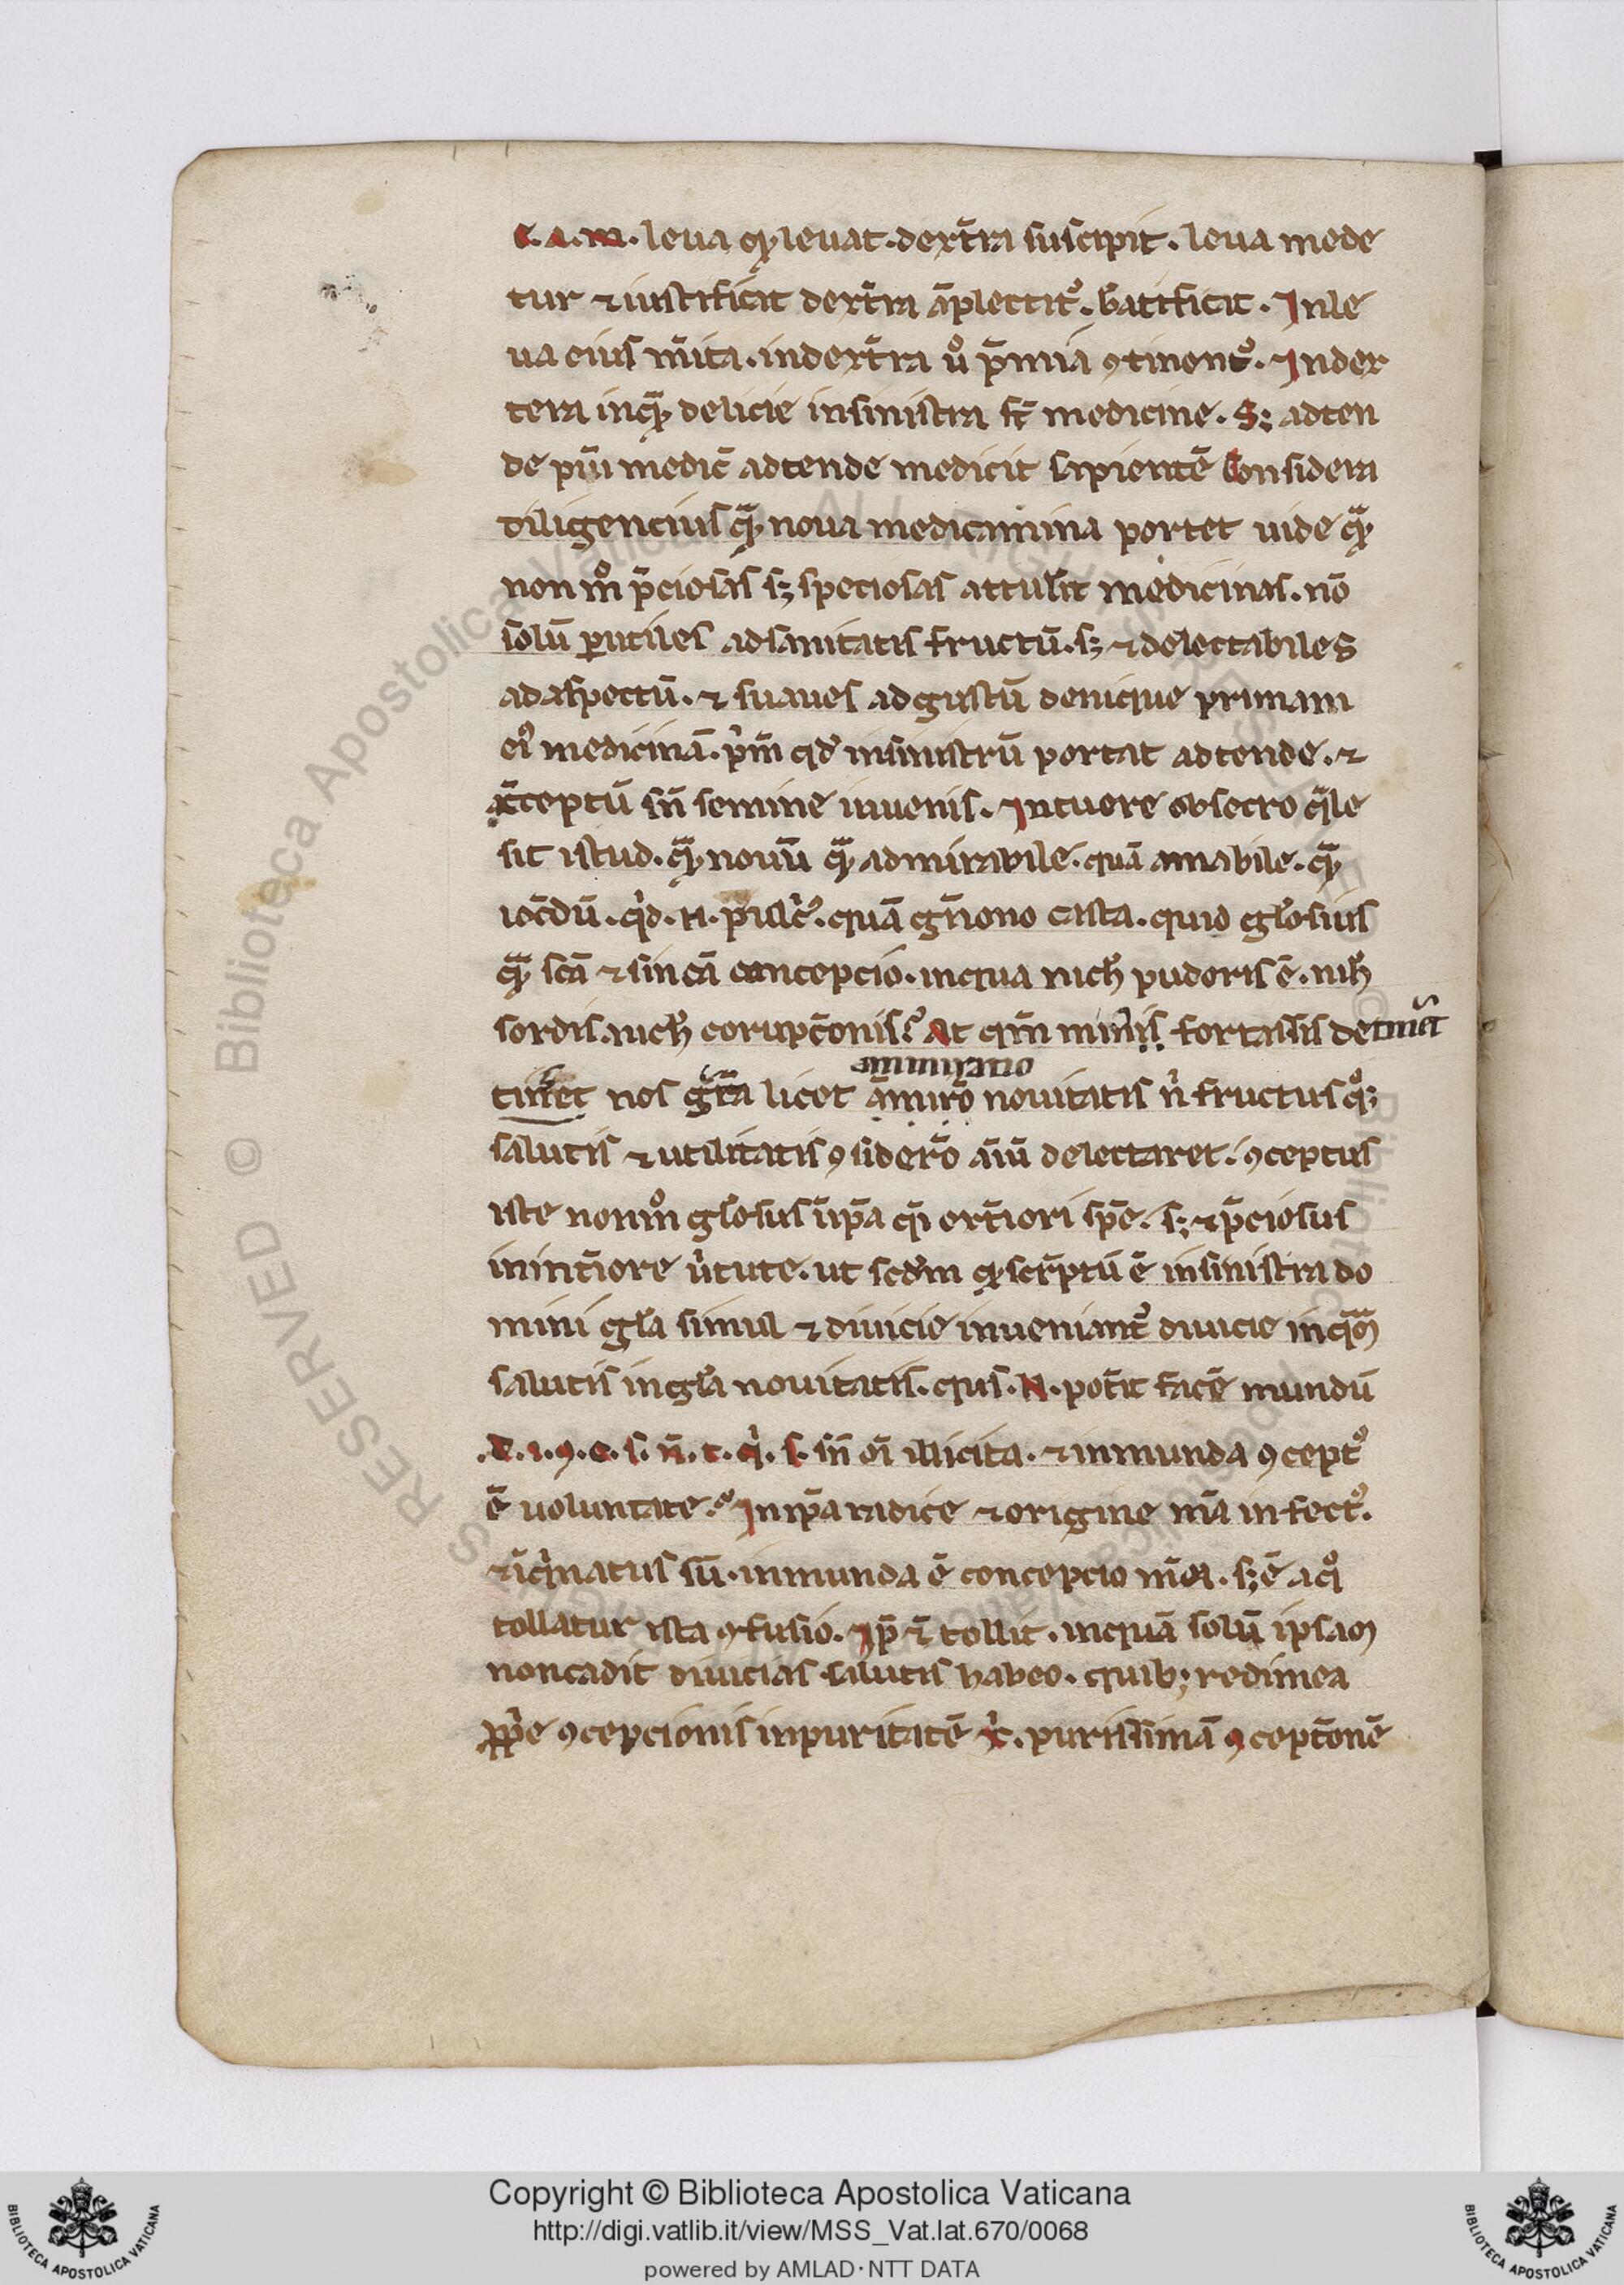 c. a. m. leua qͥ leuat. dext̄ra suscipit. leua mede
tur ⁊ iustificat dext̄ra āplectitᷣ. b̄atificat. In le
ua eius m̄ita. in dext̄ra uͦ p̄mia ꝯtinentᷣ. In dex
tera inqͣ̄ delicie in sinistra st̄ medicine. S; adten
de piū medic̄ adtende medicū sapientē Considera
diligencius qͣ̄ noua medicamina portet uide qͣ̄
non mͦ p̄ciosas s; speciosas attulit medicinas. nō
solū ꝑ utiles ad sanitatis fructū. s; ⁊ delectabiles
ad aspectū. ⁊ suaues ad gustū denique primam
eiᷣ medicinā. pͥm̄ qđ in sinistrū portat adtende. ⁊
ꝯceptū sn̄ semine inuenis. Intuere obsecro qͣ̄le
sit istud. qͣ̄ nouū qͣ̄ admirabile. quā amabile. qͣ̄
ioc̄dū. qͥd. N. pulcͥᷣ. quā gn̄ono casta. quid gl̄osius
qͣ̄ scā ⁊ sincā concepcio. in qua nich̄ pudoris ē. nih̄
sordis. nich̄ corupc̄onis? At qm̄ minͥis fortassis de
tineret nos gr̄a licet āmirō nouitatis n̄ fructus qͦ;
ammiratio
salutis ⁊ utilitatis ꝯsiderō aīū delectaret. ꝯceptus
iste non mͦ gl̄osus ī ip̄a qͥ ext̄iori sp̄e. s; ⁊ p̄ciosus
in int̄iore uͥtute. ut scđm qͥ sc̄ptū ē in sinistra do
mini gl̄a simul ⁊ diuicie inueniantᷣ diuicie inqͣ̄
salutis in gl̄a nouitatis. quis. N. potēt facē mundū
.d. i. ꝯ. c. s. n̄. t. qͥ. s. sn̄ oī illicita. ⁊ inmunda ꝯceptᷣ
ē uoluntate. In ip̄a radice ⁊ origine m̄a infectᷣ.
⁊ īqͥnatus sū. inmunda ē concepcio m̄ea. s; ē a qͦ
tollatur ista ꝯfusio. Ip̄ ēī tollit. in quā solū ipsam
non cadit diuicias salutis habeo. quib; redimea
ꝓpͥe ꝯcepcionis inpuritatē xͥ. purissimā ꝯcepc̄onē
Copyright © Biblioteca Apostolica Vaticana
http://digi.vatlib.it/view/MSS_Vat.lat.670/0068
powered by AMLAD·NTT DATA
BIBLIOTECA APOSTOLICA VATICANA
BIBLIOTECA APOSTOLICA VATICANA